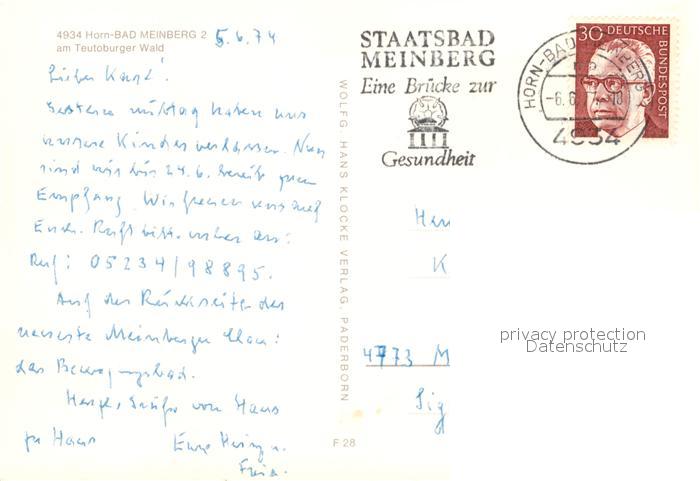 4934 Horn-BAD MEINBERG 2
am Teutoburger Wald
5.6.74
Lieber Karst!
Gestern mittag haben uns
unsere Kinder verlassen. Nun
sind wir bis 24.6. bereit zum
Empfang. Wir freuen uns auf
Euch. Ruft bitte vorher an:
Ruf: 05234/98895.
Auf der Rückseite das
neueste Meinberger
das Bewegungsbad.
Herzl. Grüße von Haus
zu Haus
Eure
WOLFG. HANS KLOCKE VERLAG, PADERBORN
F 28
STAATSBAD
MEINBERG
Eine Brücke zur
Gesundheit
HORN-BAD MEINBERG
-6.6.7
-18
4934
30 DEUTSCHE
BUNDESPOST
Herr
K
4773 M
Sig
privacy protection
Datenschutz